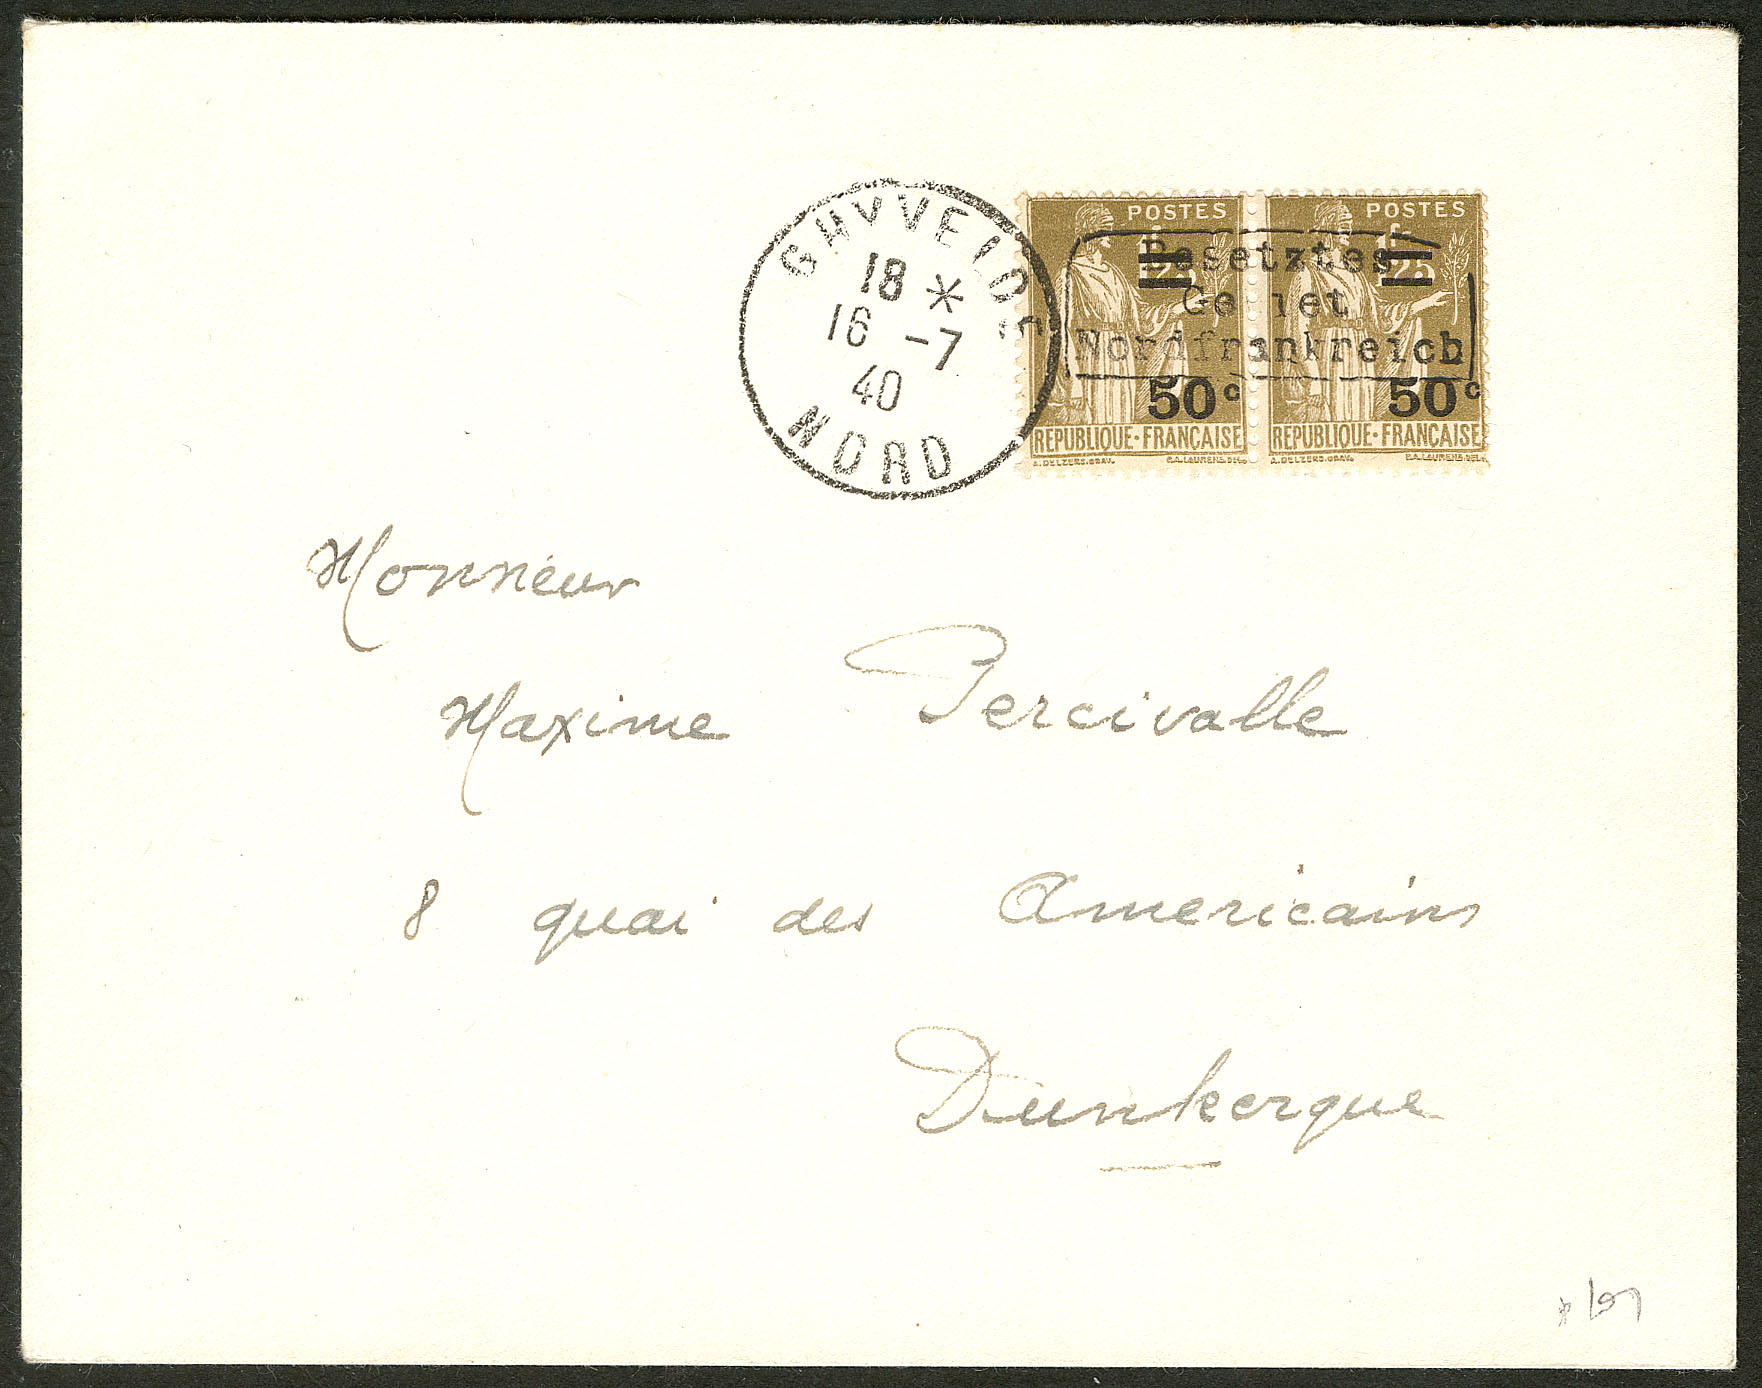 GHYVELDE
18 *
16 -7
40
NORD
POSTES POSTES
1F25 1F25
Besetztes
Gebiet
Nordfrankreich
50c 50c
REPUBLIQUE·FRANÇAISE REPUBLIQUE·FRANÇAISE
A.DELZERS.GRAV. P.A.LAURENS.DEL. A.DELZERS.GRAV. P.A.LAURENS.DEL.
Monsieur
Maxime Percivalle
8 quai des Americains
Dunkerque